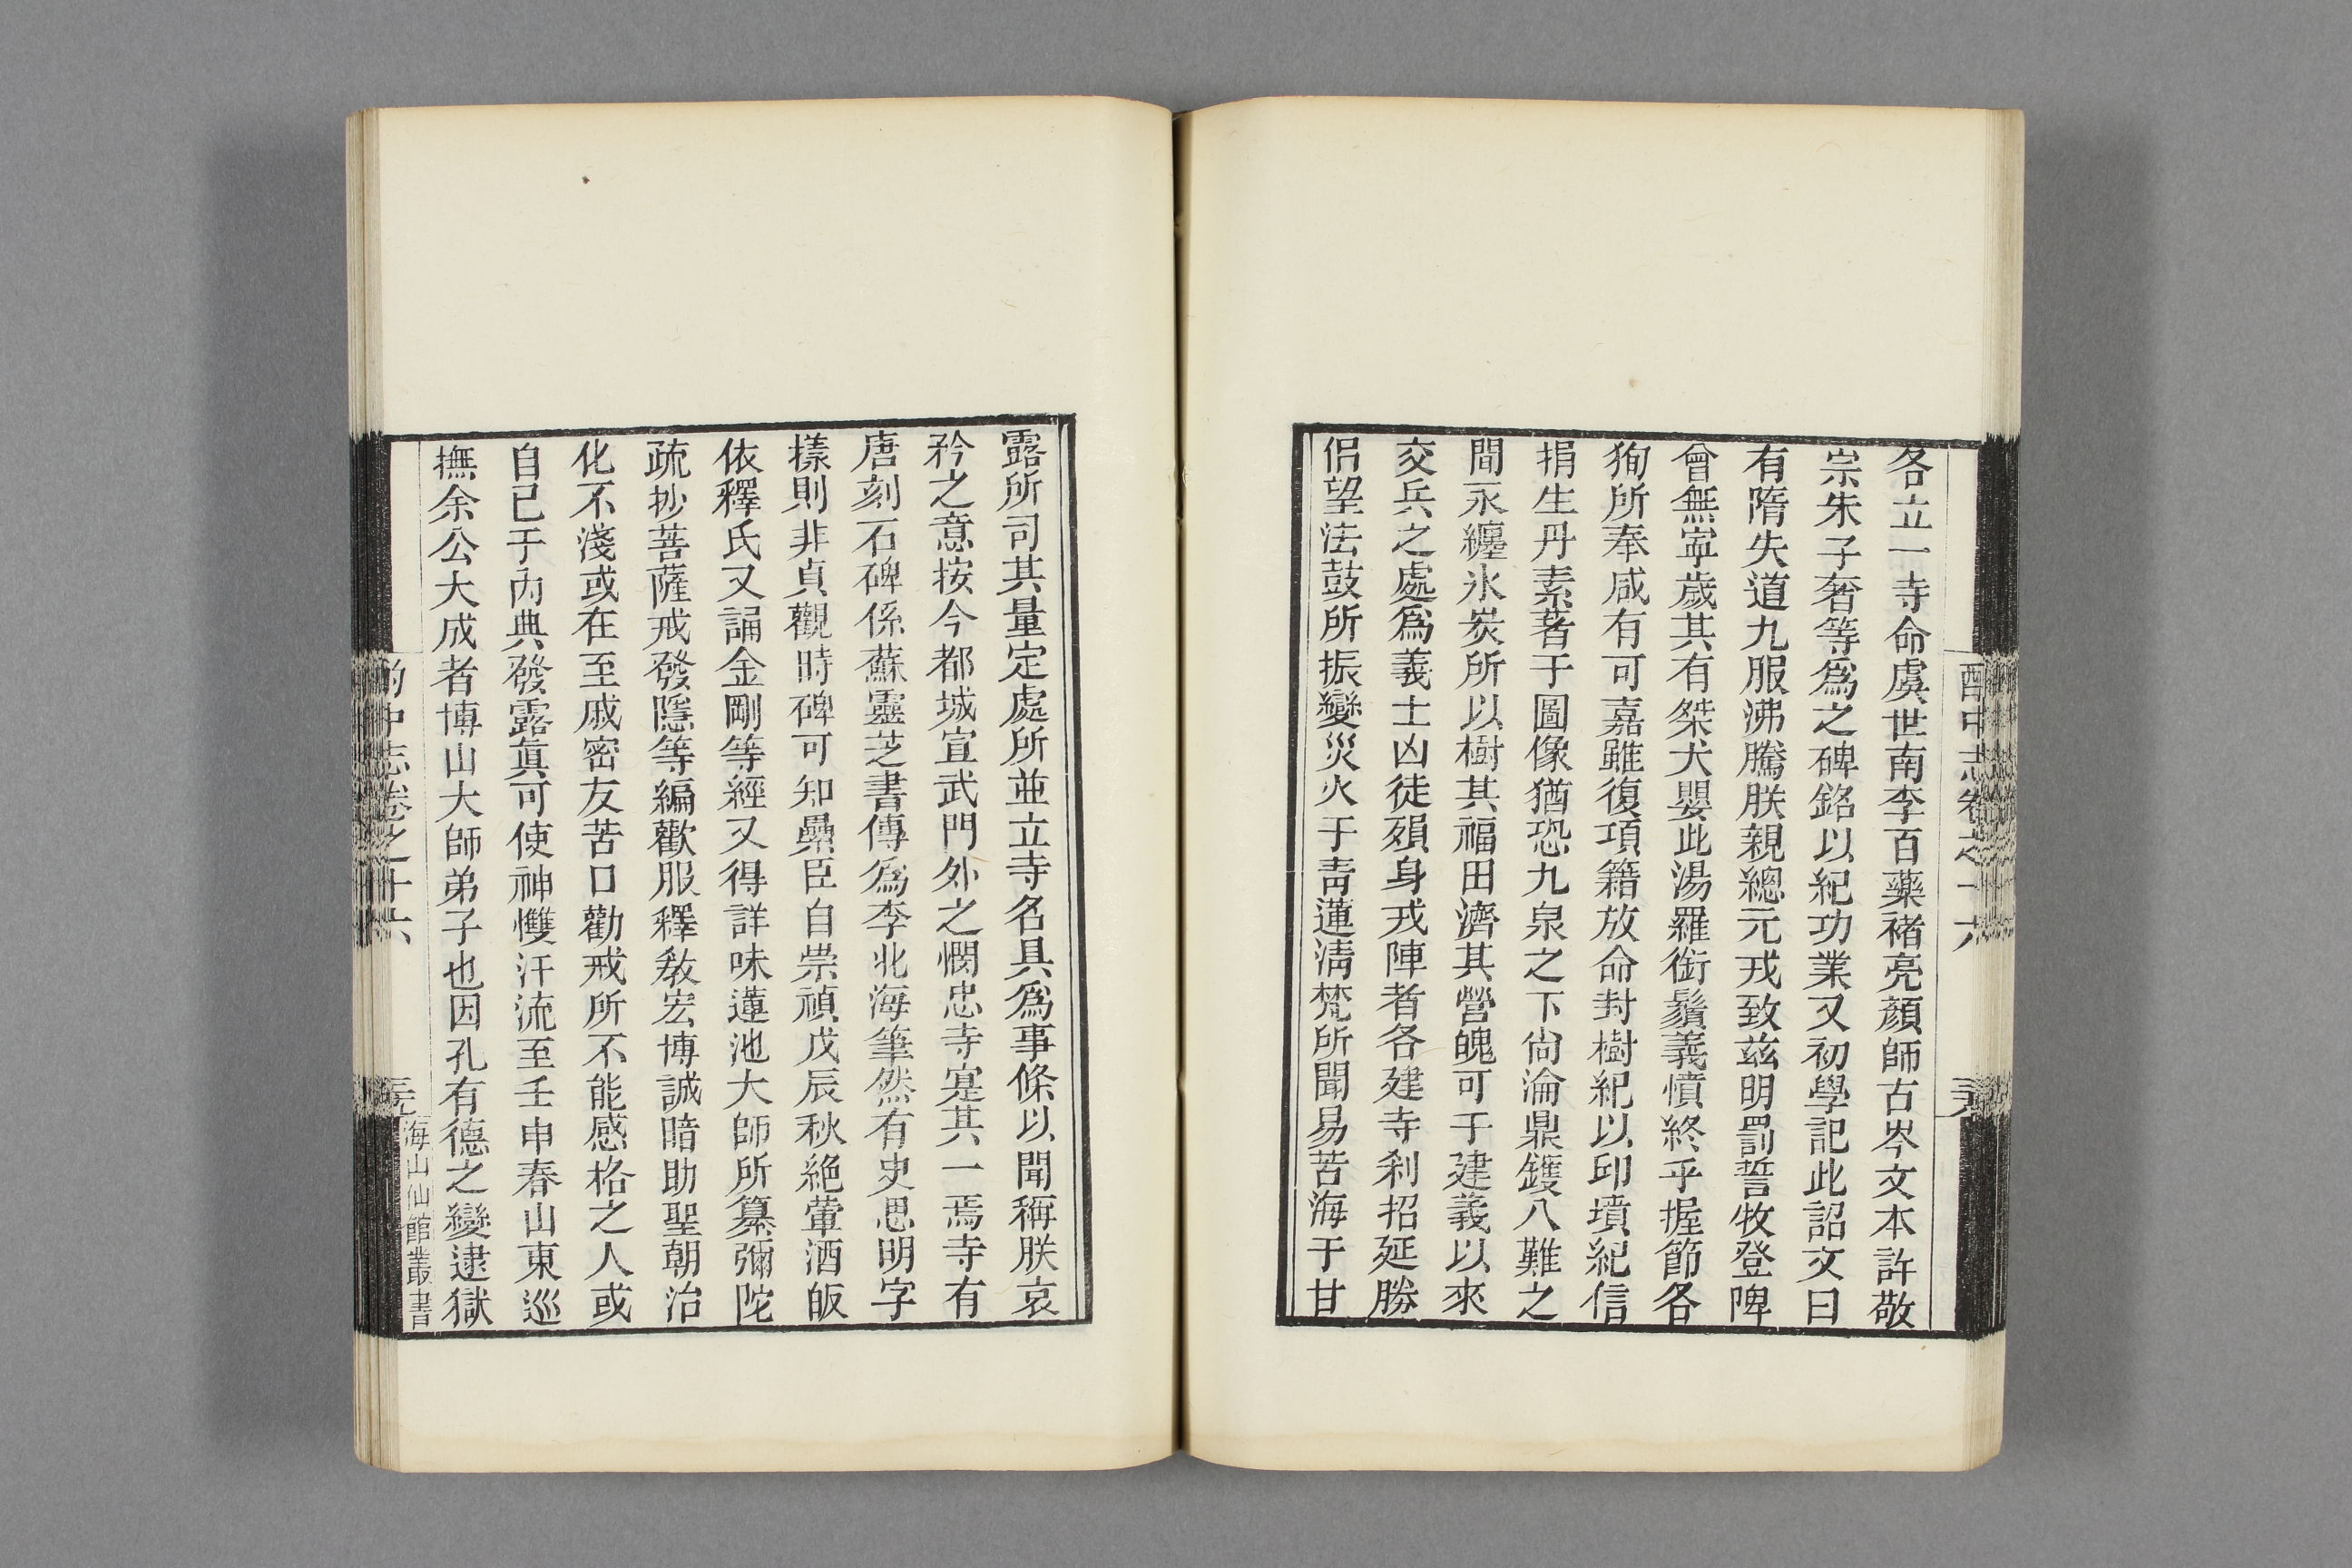 各立一寺命虞世南李百藥褚亮顏師古岑文本許敬
宗朱子奢等爲之碑銘以紀功業又初學記此詔文曰
有隋失道九服沸騰朕親總元戎致兹明罰誓牧登陴
曾無寧歲其有桀犬嬰此湯羅銜鬚義憤終乎握節各
狥所奉咸有可嘉雖復項籍放命封樹紀以邱墳紀信
捐生丹素著于圖像猶恐九泉之下尙淪鼎鑊八難之
間永纏氷炭所以樹其福田濟其營魄可于建義以來
交兵之處爲義士凶徒殞身戎陣者各建寺剎招延勝
侶望法鼓所振變災火于靑蓮淸梵所聞易苦海于甘
露所司其量定處所並立寺名具爲事條以聞稱朕哀
矜之意按今都城宣武門外之憫忠寺寔其一焉寺有
唐刻石碑係蘇靈芝書傳爲李北海筆然有史思明字
㨾則非貞觀時碑可知纍臣自崇禎戊辰秋絕葷酒皈
依釋氏又誦金剛等經又得詳味蓮池大師所纂彌陀
疏抄菩薩戒發隱等編歡服釋敎宏博誠暗助聖朝治
化不淺或在至戚密友苦口勸戒所不能感格之人或
自己于內典發露眞可使神慴汗流至壬申春山東巡
撫余公大成者博山大師弟子也因孔有德之變逮獄
酌中志卷之十六
海山仙館叢書